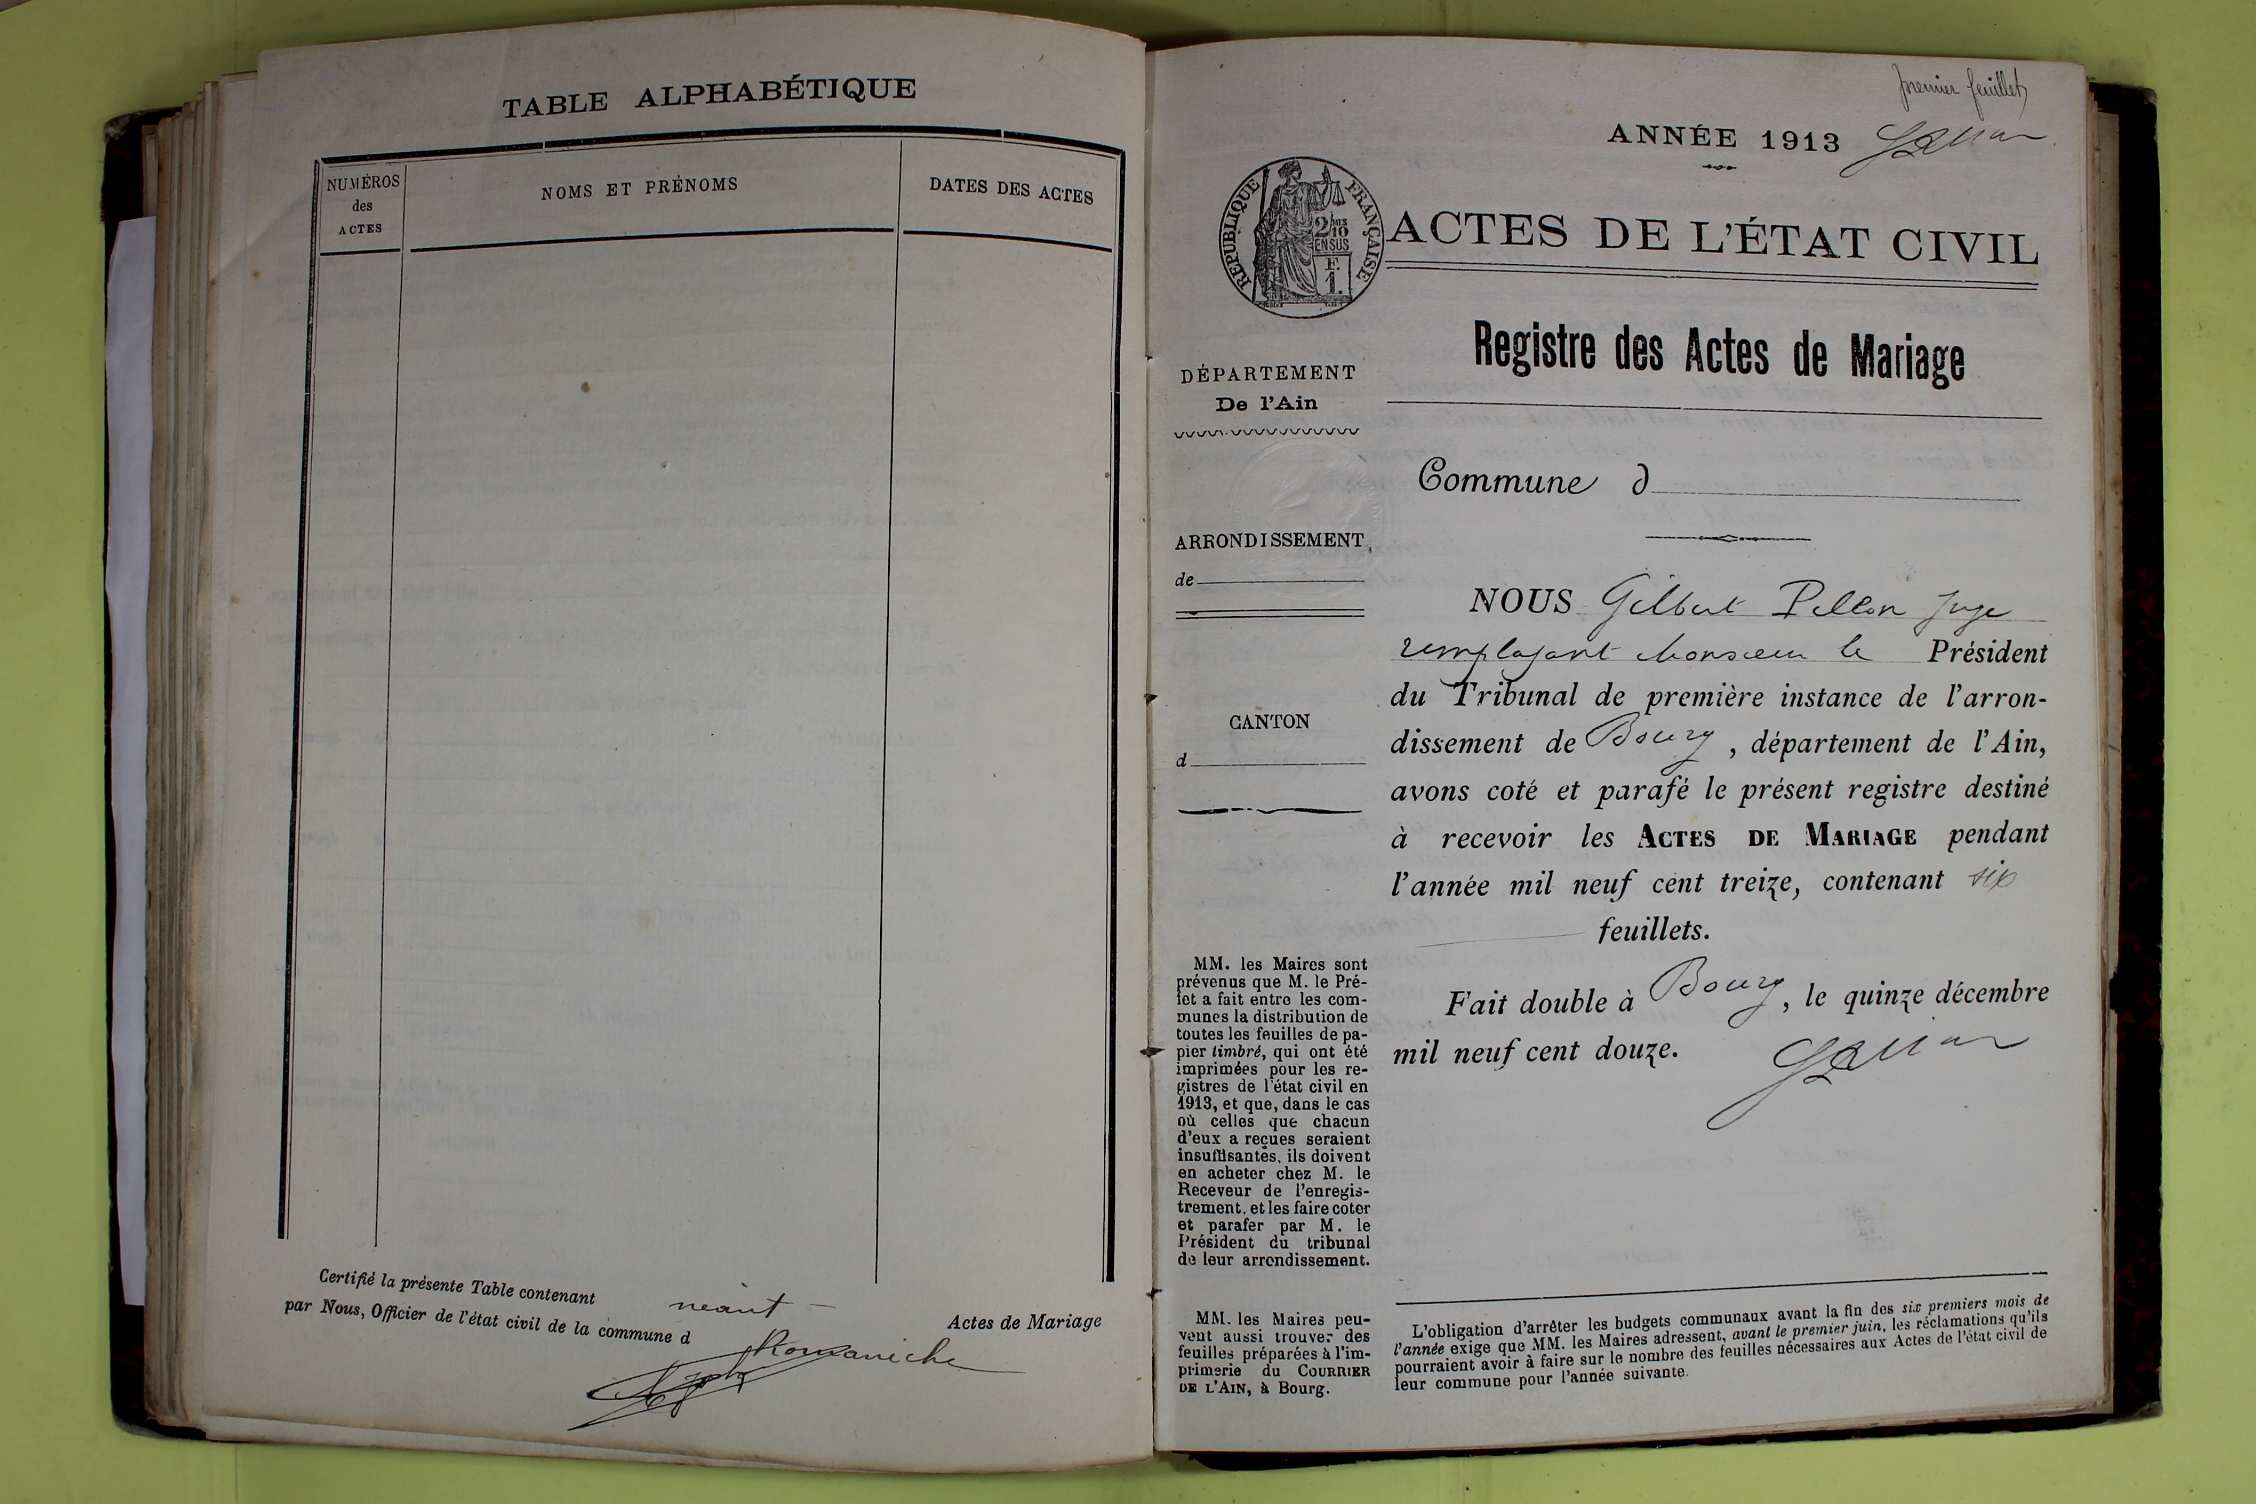 TABLE ALPHABÉTIQUE
NUMÉROS
des
ACTES
NOMS ET PRÉNOMS
DATES DES ACTES
Certifié la présente Table contenant néant — Actes de Mariage
par Nous, Officier de l'état civil de la commune d Romanèche
premier feuillet
ANNÉE 1913
RÉPUBLIQUE FRANÇAISE
2/10
EN SUS
F.
1.
ACTES DE L'ÉTAT CIVIL
Registre des Actes de Mariage
DÉPARTEMENT
De l'Ain
Commune d
ARRONDISSEMENT
de
CANTON
d
NOUS Gilbert Pellon Juge
remplaçant Monsieur le Président
du Tribunal de première instance de l'arron-
dissement de Bourg, département de l'Ain,
avons coté et parafé le présent registre destiné
à recevoir les ACTES DE MARIAGE pendant
l'année mil neuf cent treize, contenant six
feuillets.
Fait double à Bourg, le quinze décembre
mil neuf cent douze.
MM. les Maires sont
prévenus que M. le Pré-
fet a fait entre les com-
munes la distribution de
toutes les feuilles de pa-
pier timbré, qui ont été
imprimées pour les re-
gistres de l'état civil en
1913, et que, dans le cas
où celles que chacun
d'eux a reçues seraient
insuffisantes, ils doivent
en acheter chez M. le
Receveur de l'enregis-
trement, et les faire coter
et parafer par M. le
Président du tribunal
de leur arrondissement.
MM. les Maires peu-
vent aussi trouver des
feuilles préparées à l'im-
primerie du COURRIER
DE L'AIN, à Bourg.
L'obligation d'arrêter les budgets communaux avant la fin des six premiers mois de
l'année exige que MM. les Maires adressent, avant le premier juin, les réclamations qu'ils
pourraient avoir à faire sur le nombre des feuilles nécessaires aux Actes de l'état civil de
leur commune pour l'année suivante.